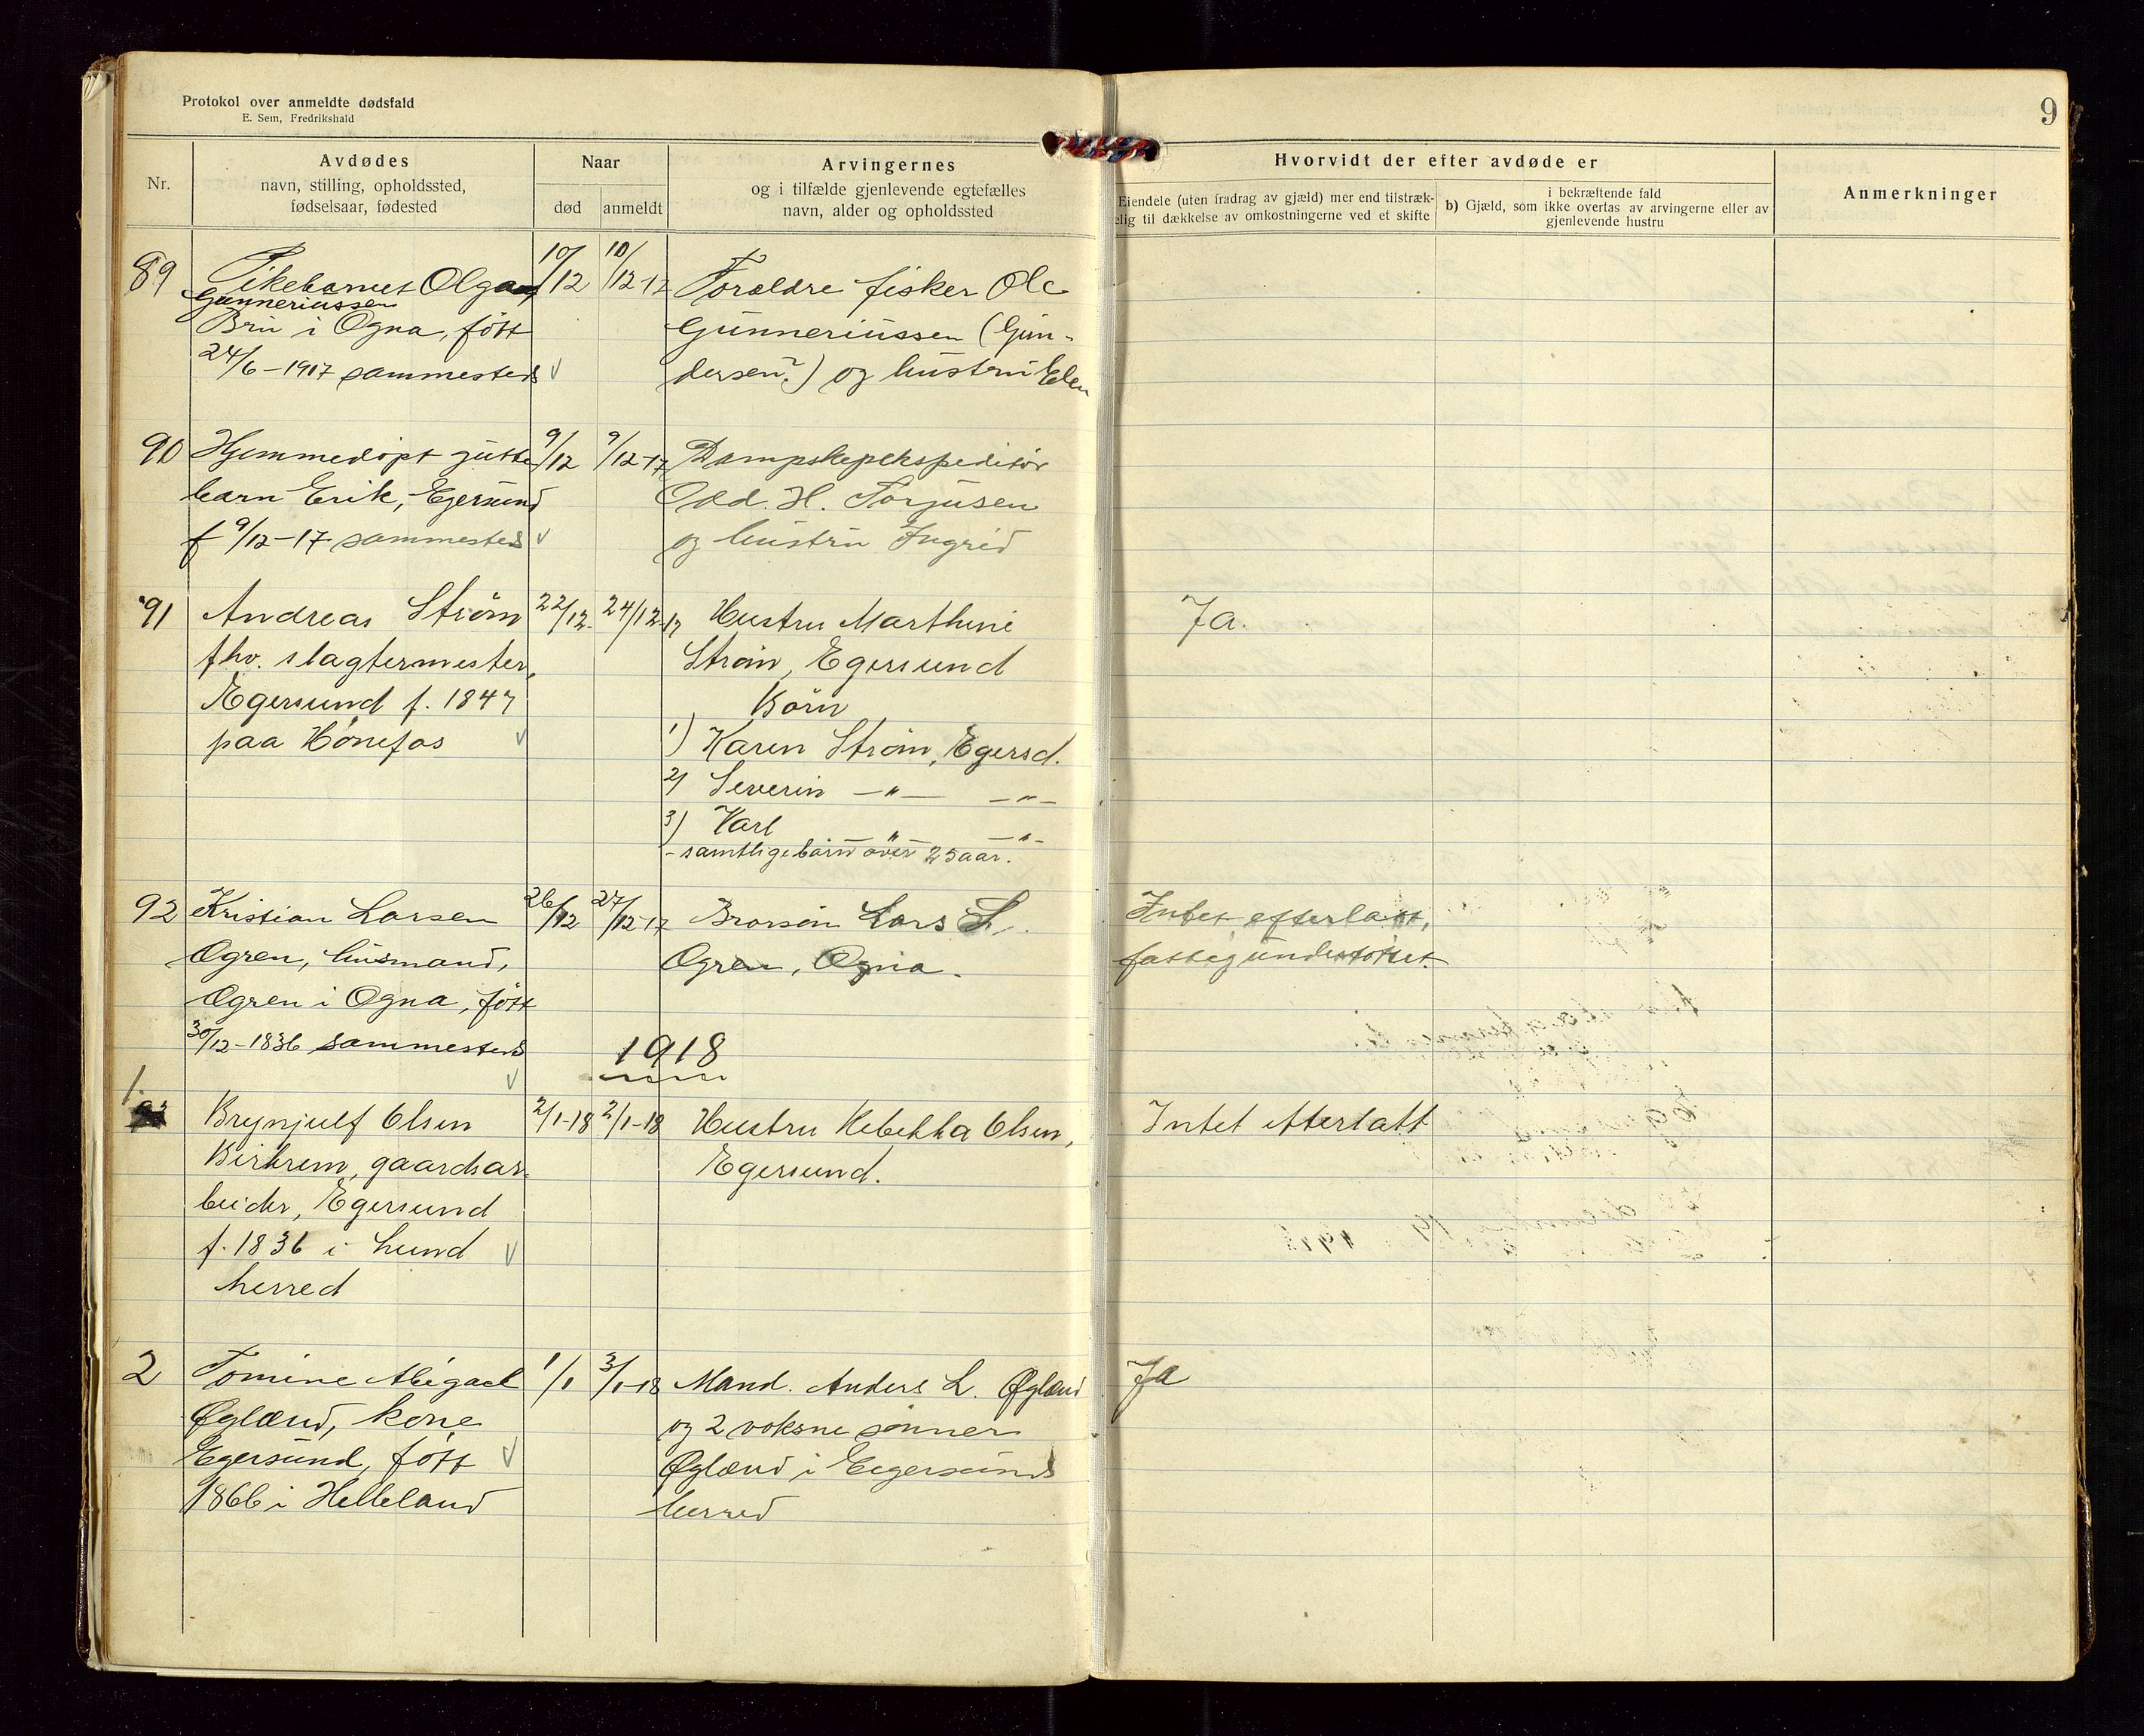 Protokol over anmeldte dødsfald
E. Sem, Fredrikshald
9
Nr.
Avdødes
navn, stilling, opholdssted,
fødselsaar, fødested
Naar
død
anmeldt
Arvingernes
og i tilfælde gjenlevende egtefælles
navn, alder og opholdssted
Hvorvidt der efter avdøde er
Eiendele (uten fradrag av gjæld) mer end tilstræk-
elig til dækkelse av omkostningerne ved et skifte
i bekræftende fald
b) Gjæld, som ikke overtas av arvingerne eller av
gjenlevende hustru
Anmerkninger
89
Pikebarnet Olga
Gunneriussen
Bru i Ogna, født
24/6-1917 sammesteds
10/12
10/12-17
Forældre fisker Ole
Gunneriussen (Gun-
dersen?) og hustru Elen
90
Hjemmedøpt gutte
barn Erik, Egersund
f 9/12-17 sammesteds
9/12
9/12-17
Dampskipekspeditør
Odd. H. Torjusen
og hustru Ingrid
91
Andreas Strøm
fhv. slagtermester,
Egersund f. 1847
paa Hønefos
22/12.
24/12-17
Hustru Marthine
Strøm, Egersund
Børn
1) Karen Strøm, Egersd.
2) Severin -"- -"-
3) Karl -"- -"-
- samtlige børn over 25 aar.
Ja.
92
Kristian Larsen
Ogren, husmand,
Ogren i Ogna, født
30/12-1836 sammesteds
26/12
27/12-17
Brorsøn Lars L.
Ogren, Ogna.
Intet efterlatt,
fattigunderstøttet.
1918
1.
Brynjulf Olsen
Birkrem, gaardsar-
beider, Egersund
f. 1836 i Lund
herred
2/1-18
2/1-18
Hustru Rebekka Olsen,
Egersund.
Intet efterlatt
2
Tomine Abigael
Øglænd, kone
Egersund, født
1866 i Helleland
1/1
3/1-18
Mand. Anders L. Øglænd
og 2 voksne sønner
Øglænd i Egersunds
herred
Ja